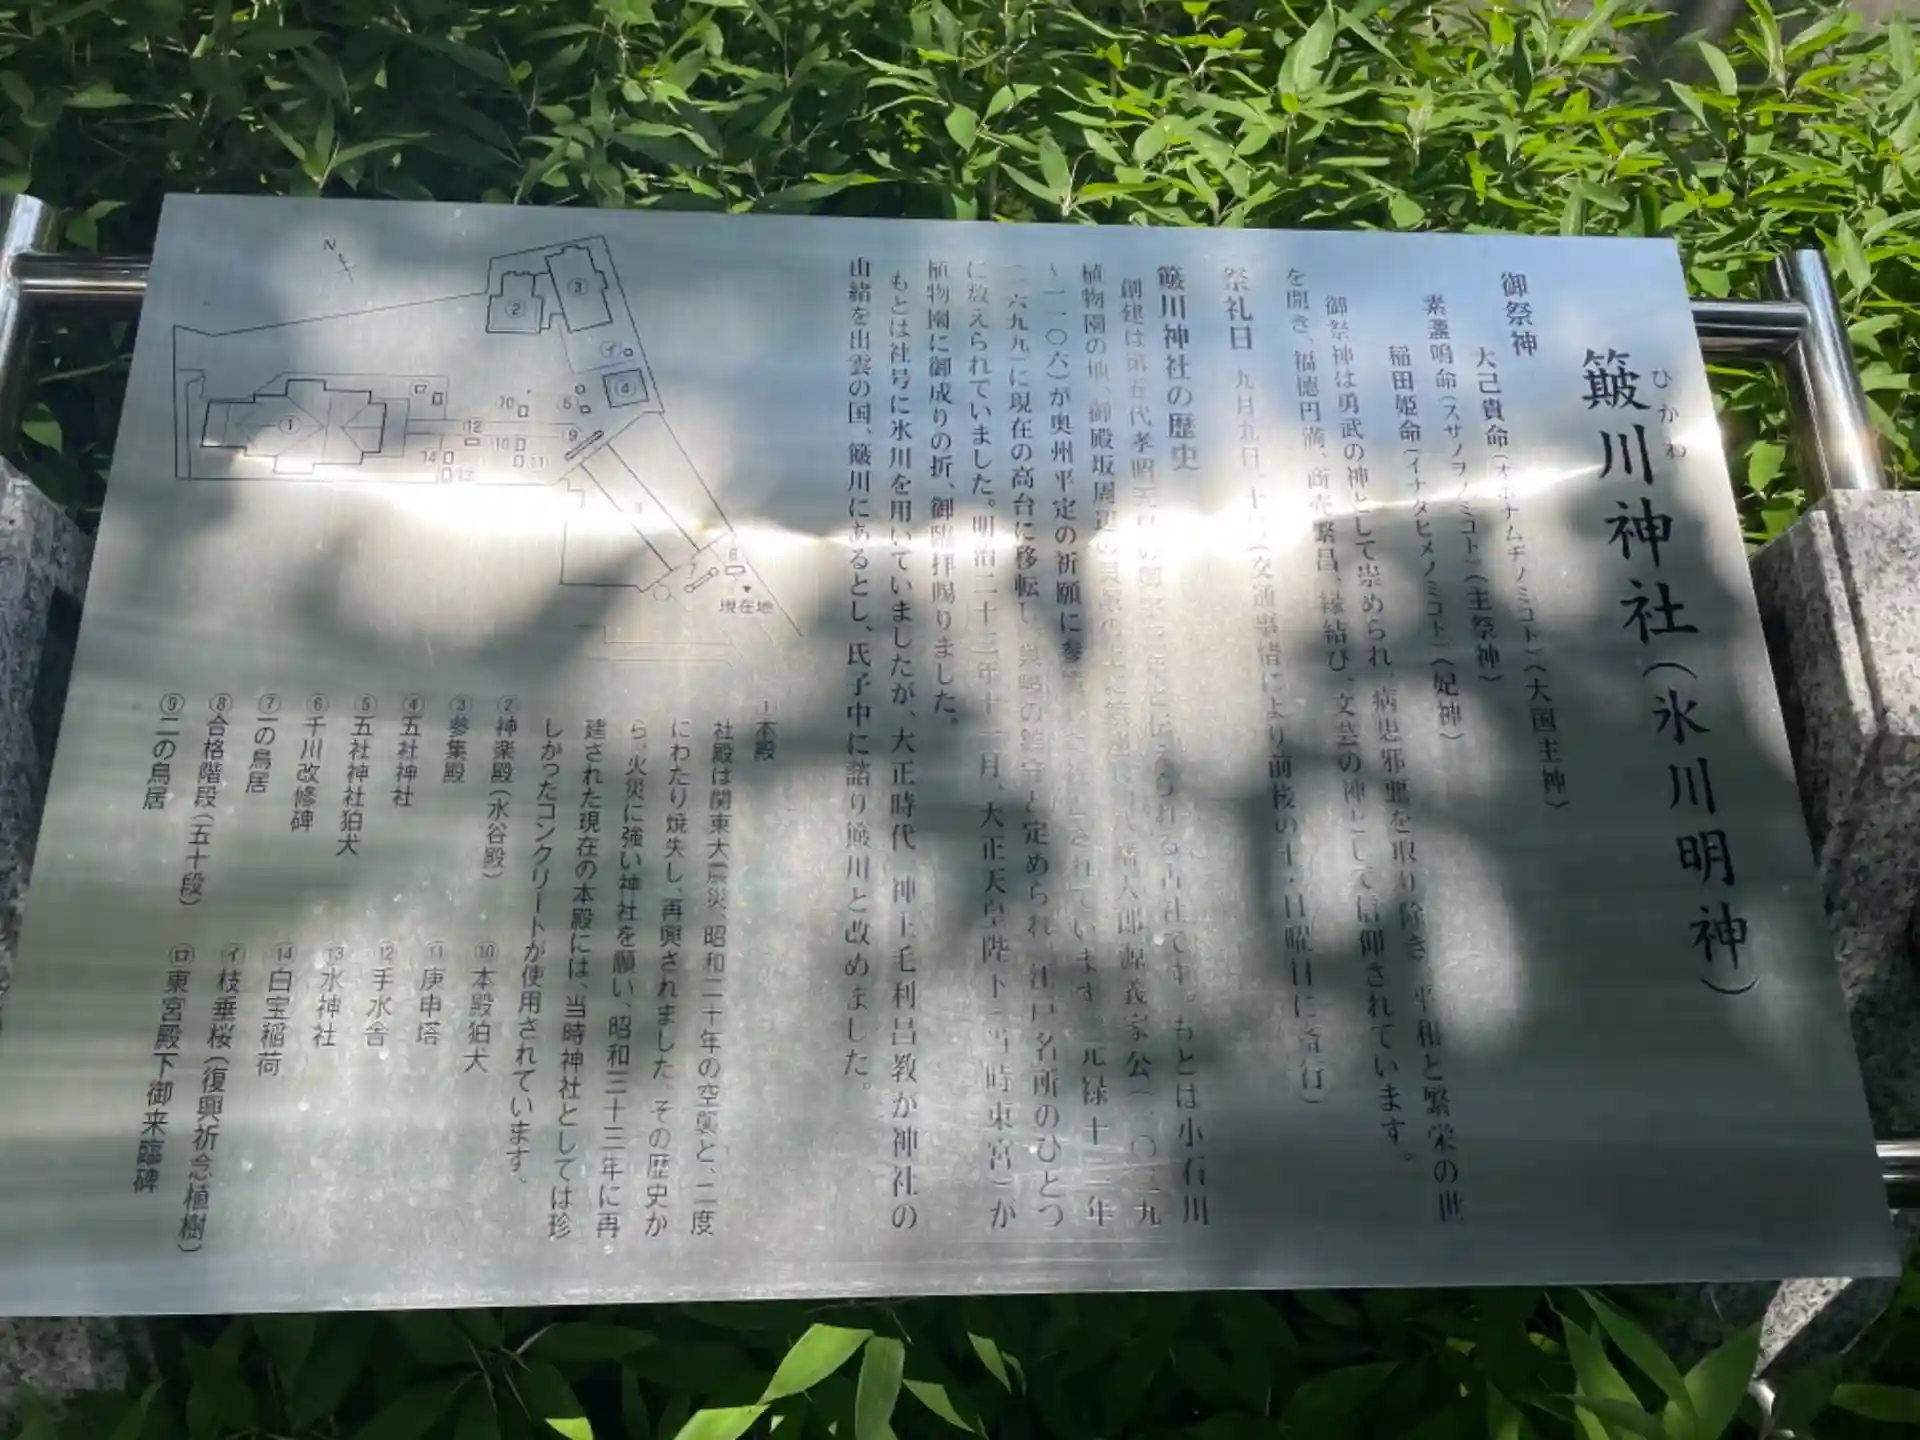 簸川神社（氷川明神）
ひかわ
御祭神
大己貴命（オホナムヂノミコト）（大国主神）
素盞嗚命（スサノヲノミコト）（主祭神）
稲田姫命（イナダヒメノミコト）（妃神）
御祭神は勇武の神として崇められ、病患邪悪を取り除き 平和と繁栄の世
を開き、福徳円満、商売繁昌、縁結び、文芸の神として信仰されています。
祭礼日 九月九日、十日（交通事情により前後の土・日曜日に斎行）
簸川神社の歴史
創建は第五代孝昭天皇の御宇 と伝えられる古社です。もとは小石川
植物園の地、御殿坂周辺の貝塚の上に 八幡太郎源義家公（一〇三九
～一一〇六）が奥州平定の祈願に参 とされています。元禄十二年
（一六九九）に現在の高台に移転し、巣鴨の鎮守と定められ、江戸名所のひとつ
に数えられていました。明治二十三年十一月、大正天皇陛下（当時東宮）が
植物園に御成りの折、御臨拝賜りました。
もとは社号に氷川を用いていましたが、大正時代、神主毛利昌教が神社の
由緒を出雲の国、簸川にあるとし、氏子中に諮り簸川と改めました。
N
①
②
③
④
⑥
⑨
⑩
⑩
⑪
⑫
⑬
⑭
イ
ロ
7
8
現在地
①本殿
社殿は関東大震災、昭和二十年の空襲と、二度
にわたり焼失し、再興されました。その歴史か
ら、火災に強い神社を願い、昭和三十三年に再
建された現在の本殿には、当時神社としては珍
しかったコンクリートが使用されています。
②神楽殿（水谷殿）
③参集殿
④五社神社
⑤五社神社狛犬
⑥千川改修碑
⑦一の鳥居
⑧合格階段（五十段）
⑨二の鳥居
⑩本殿狛犬
⑪庚申塔
⑫手水舎
⑬水神社
⑭白宝稲荷
イ枝垂桜（復興祈念植樹）
ロ東宮殿下御来臨碑